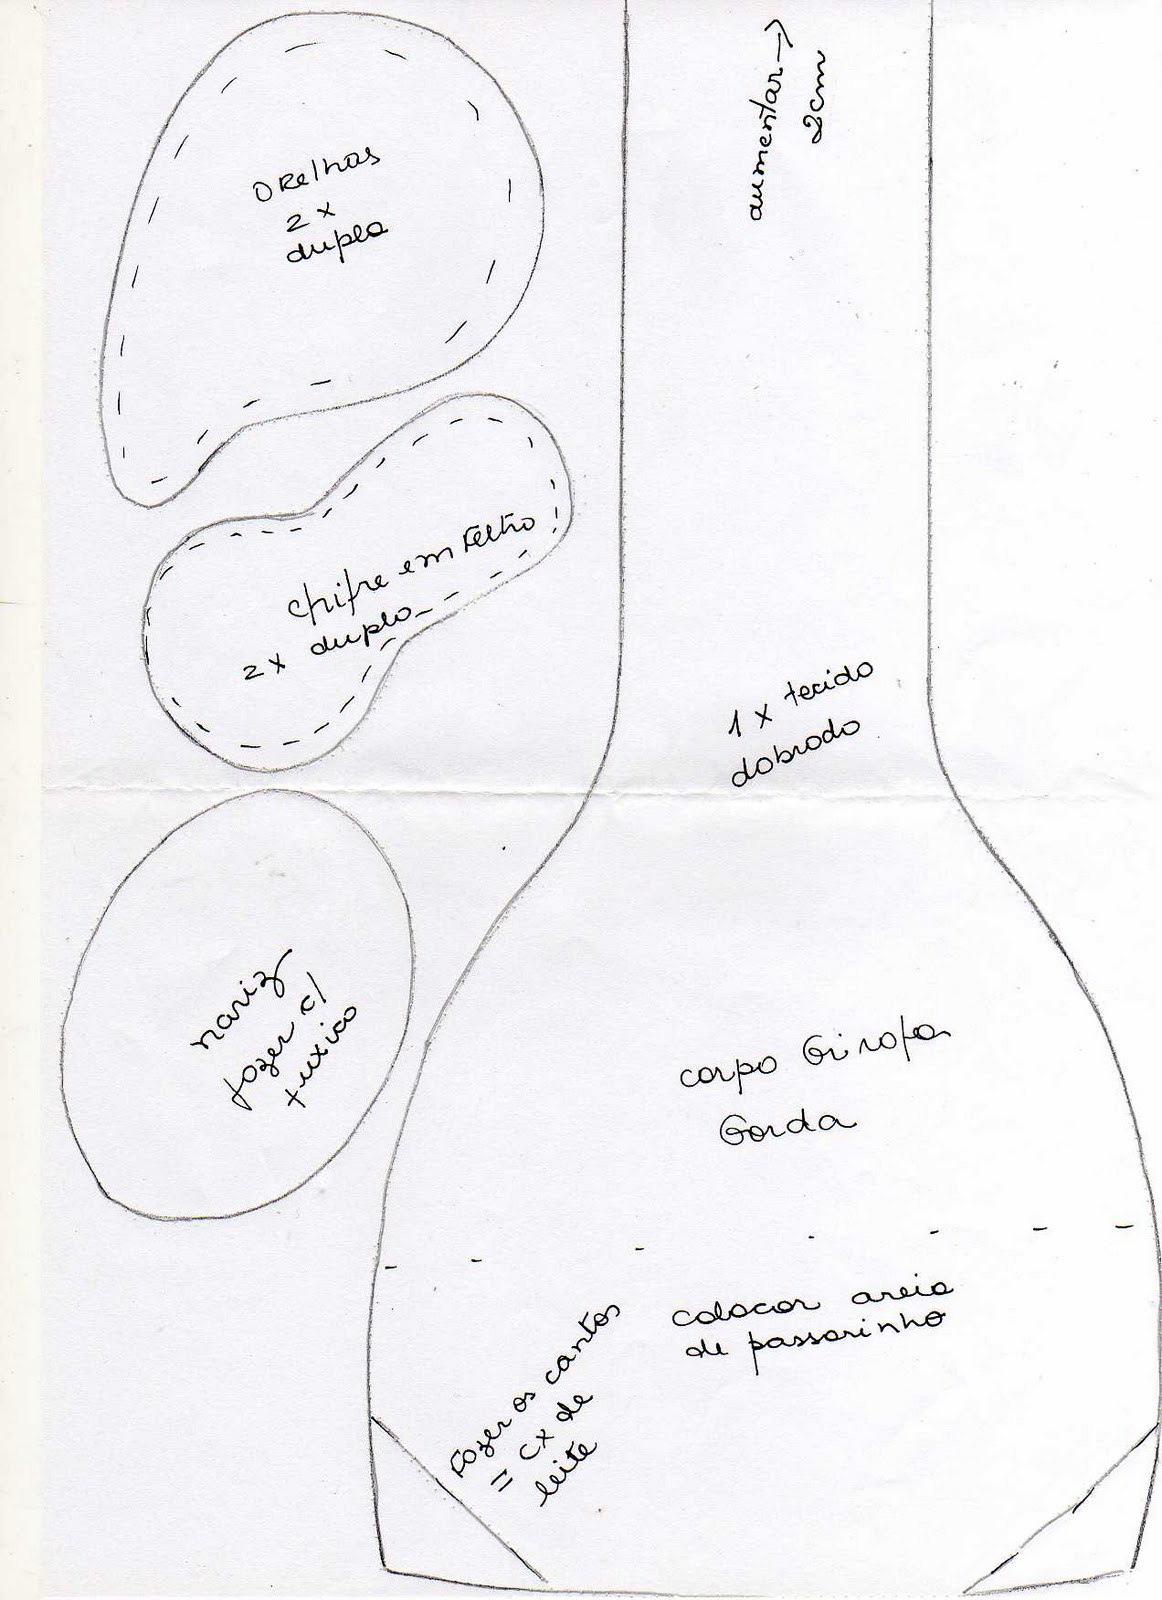 orelhas
2 x
dupla
aumentar →
2cm
chifre em feltro
2x duplo
1 x tecido
dobrado
nariz
fazer c/
fuxico
corpo Girafa
Gorda
colocar areia
de passarinho
Fazer os cantos
= cx de
leite